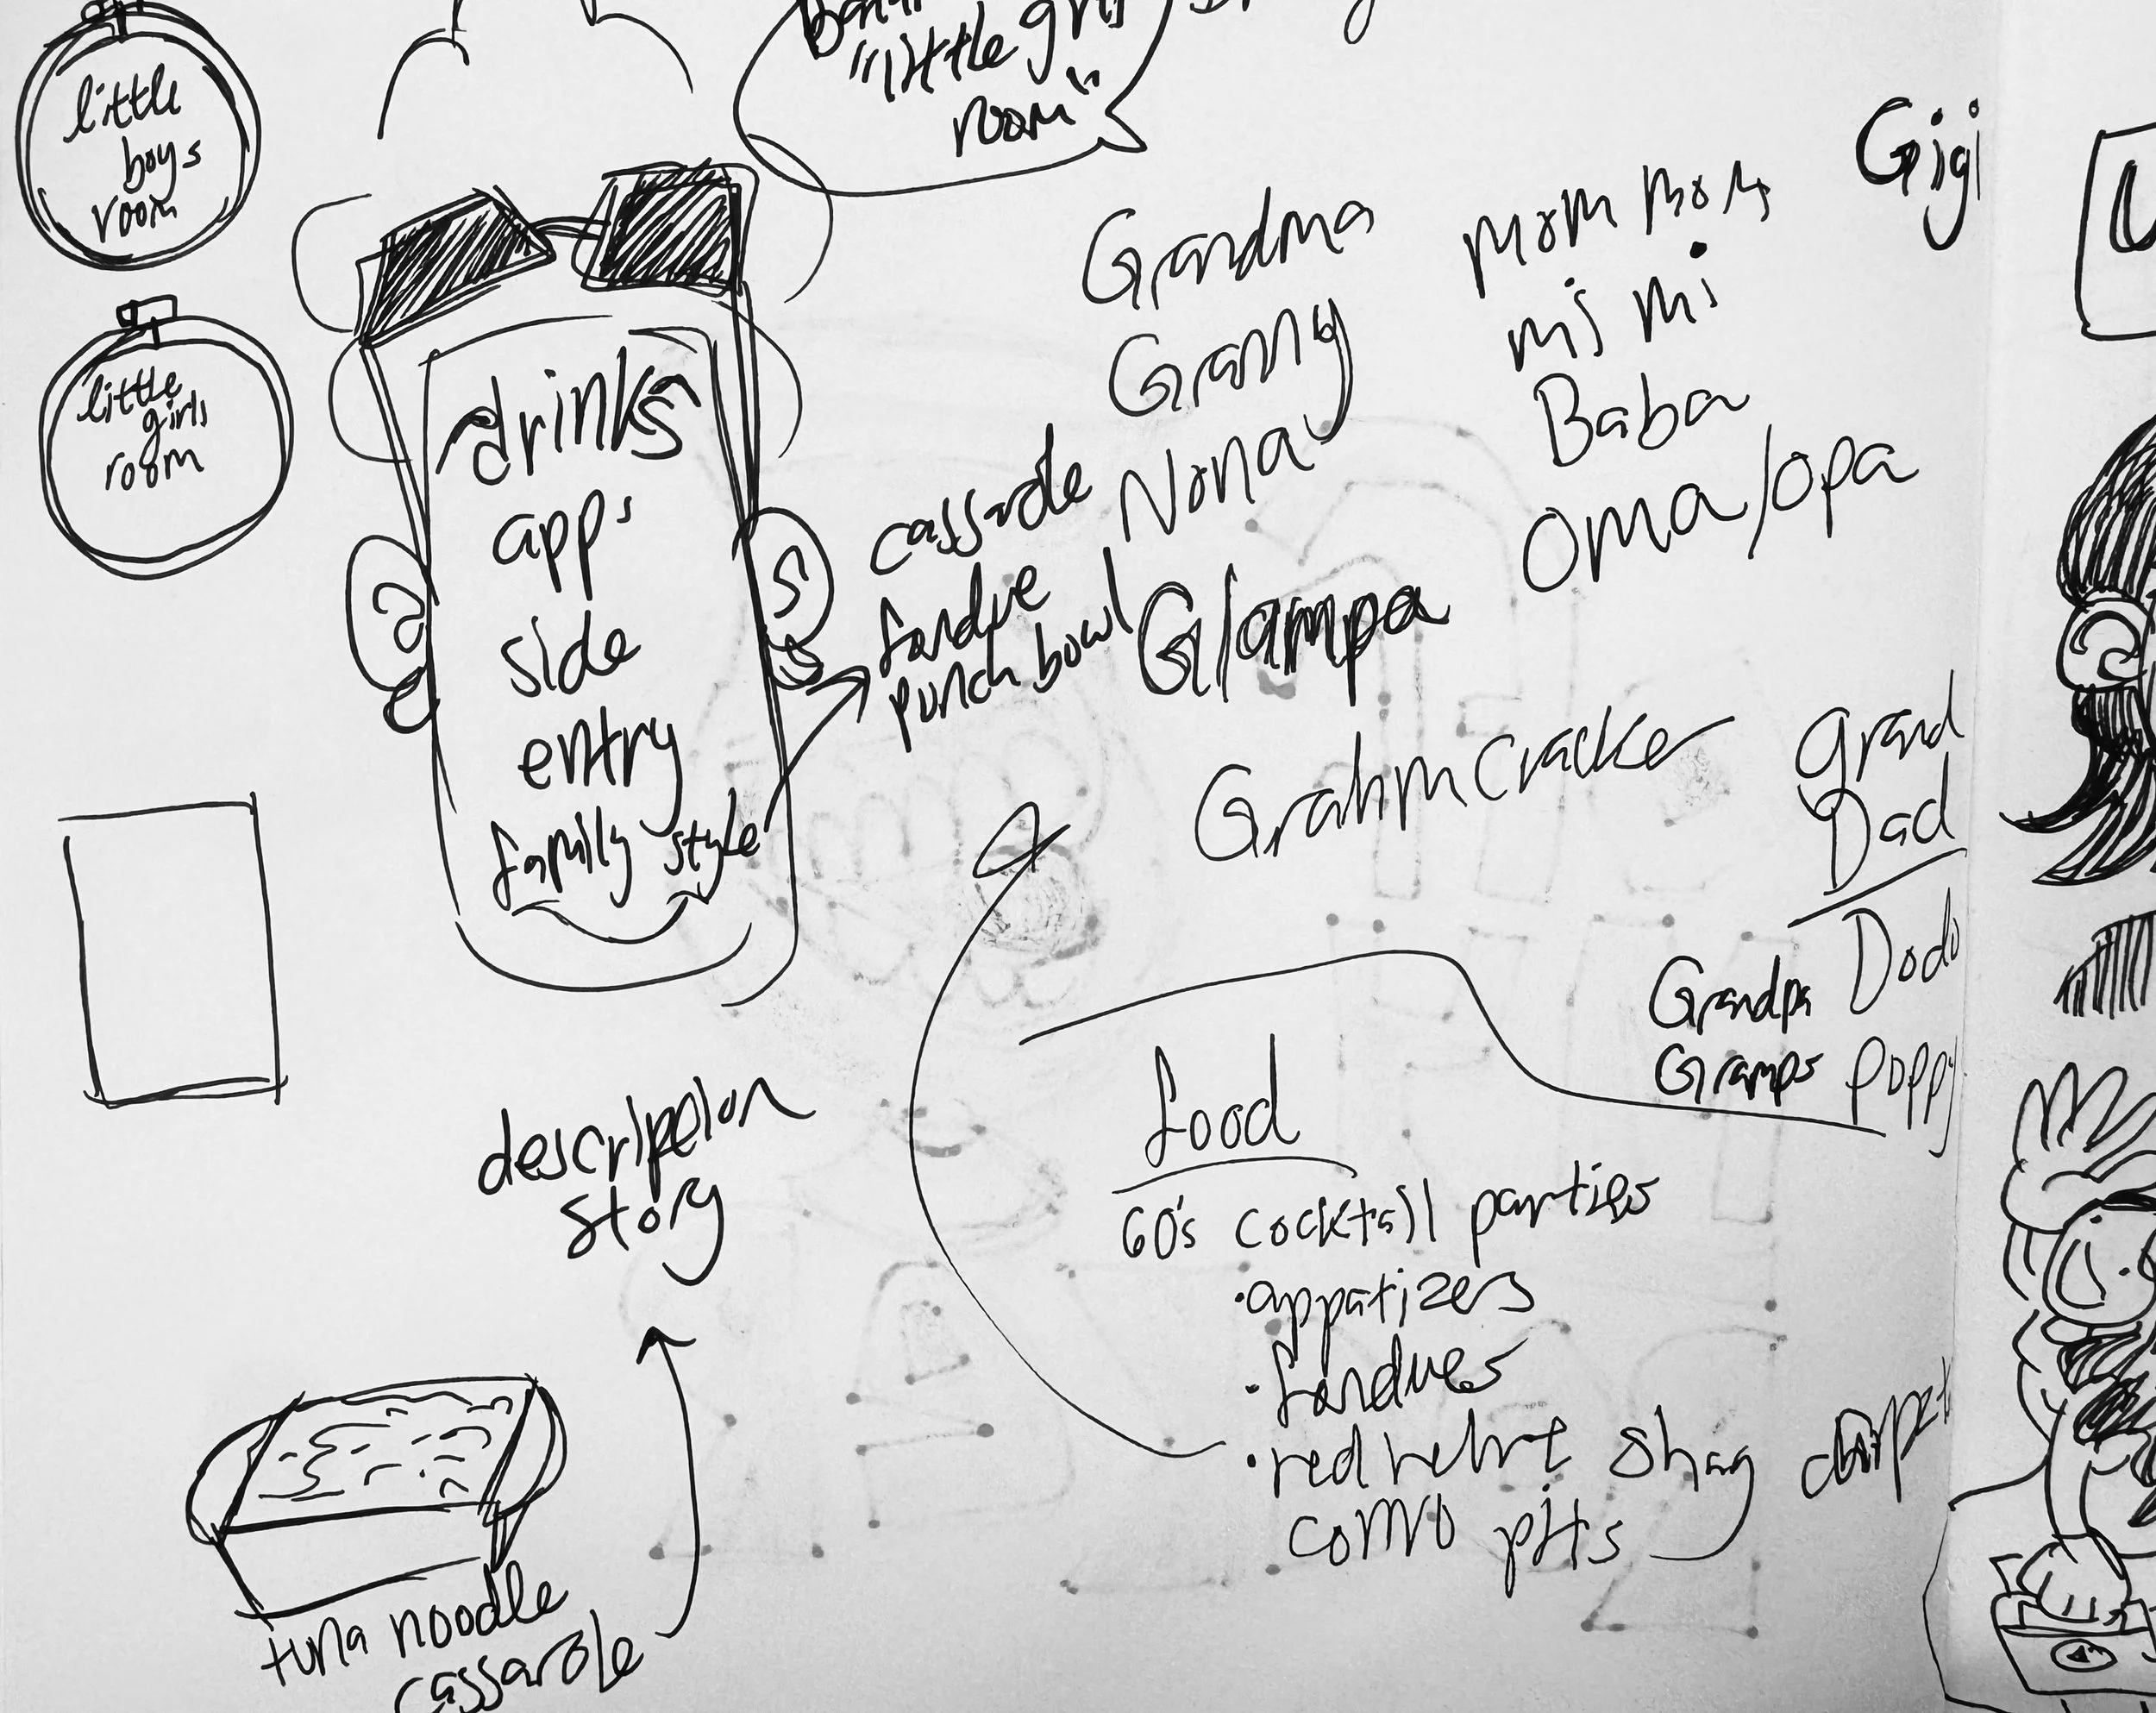 little
boys
room
"little
room"
little
girls
room
drinks
apps
side
entry
family style
cassarole
fondue
punch bowl
Grandma
Granny
Nona
Glampa
Grahm cracker
mom mom
mi mi
Baba
Oma/Opa
Gigi
Grand
Dad
Dodo
Grandpa
Gramps
poppy
description
story
food
60's cocktail parties
·appatizers
·fondues
·red velvet shag carpet
convo pits
tuna noodle
cassarole